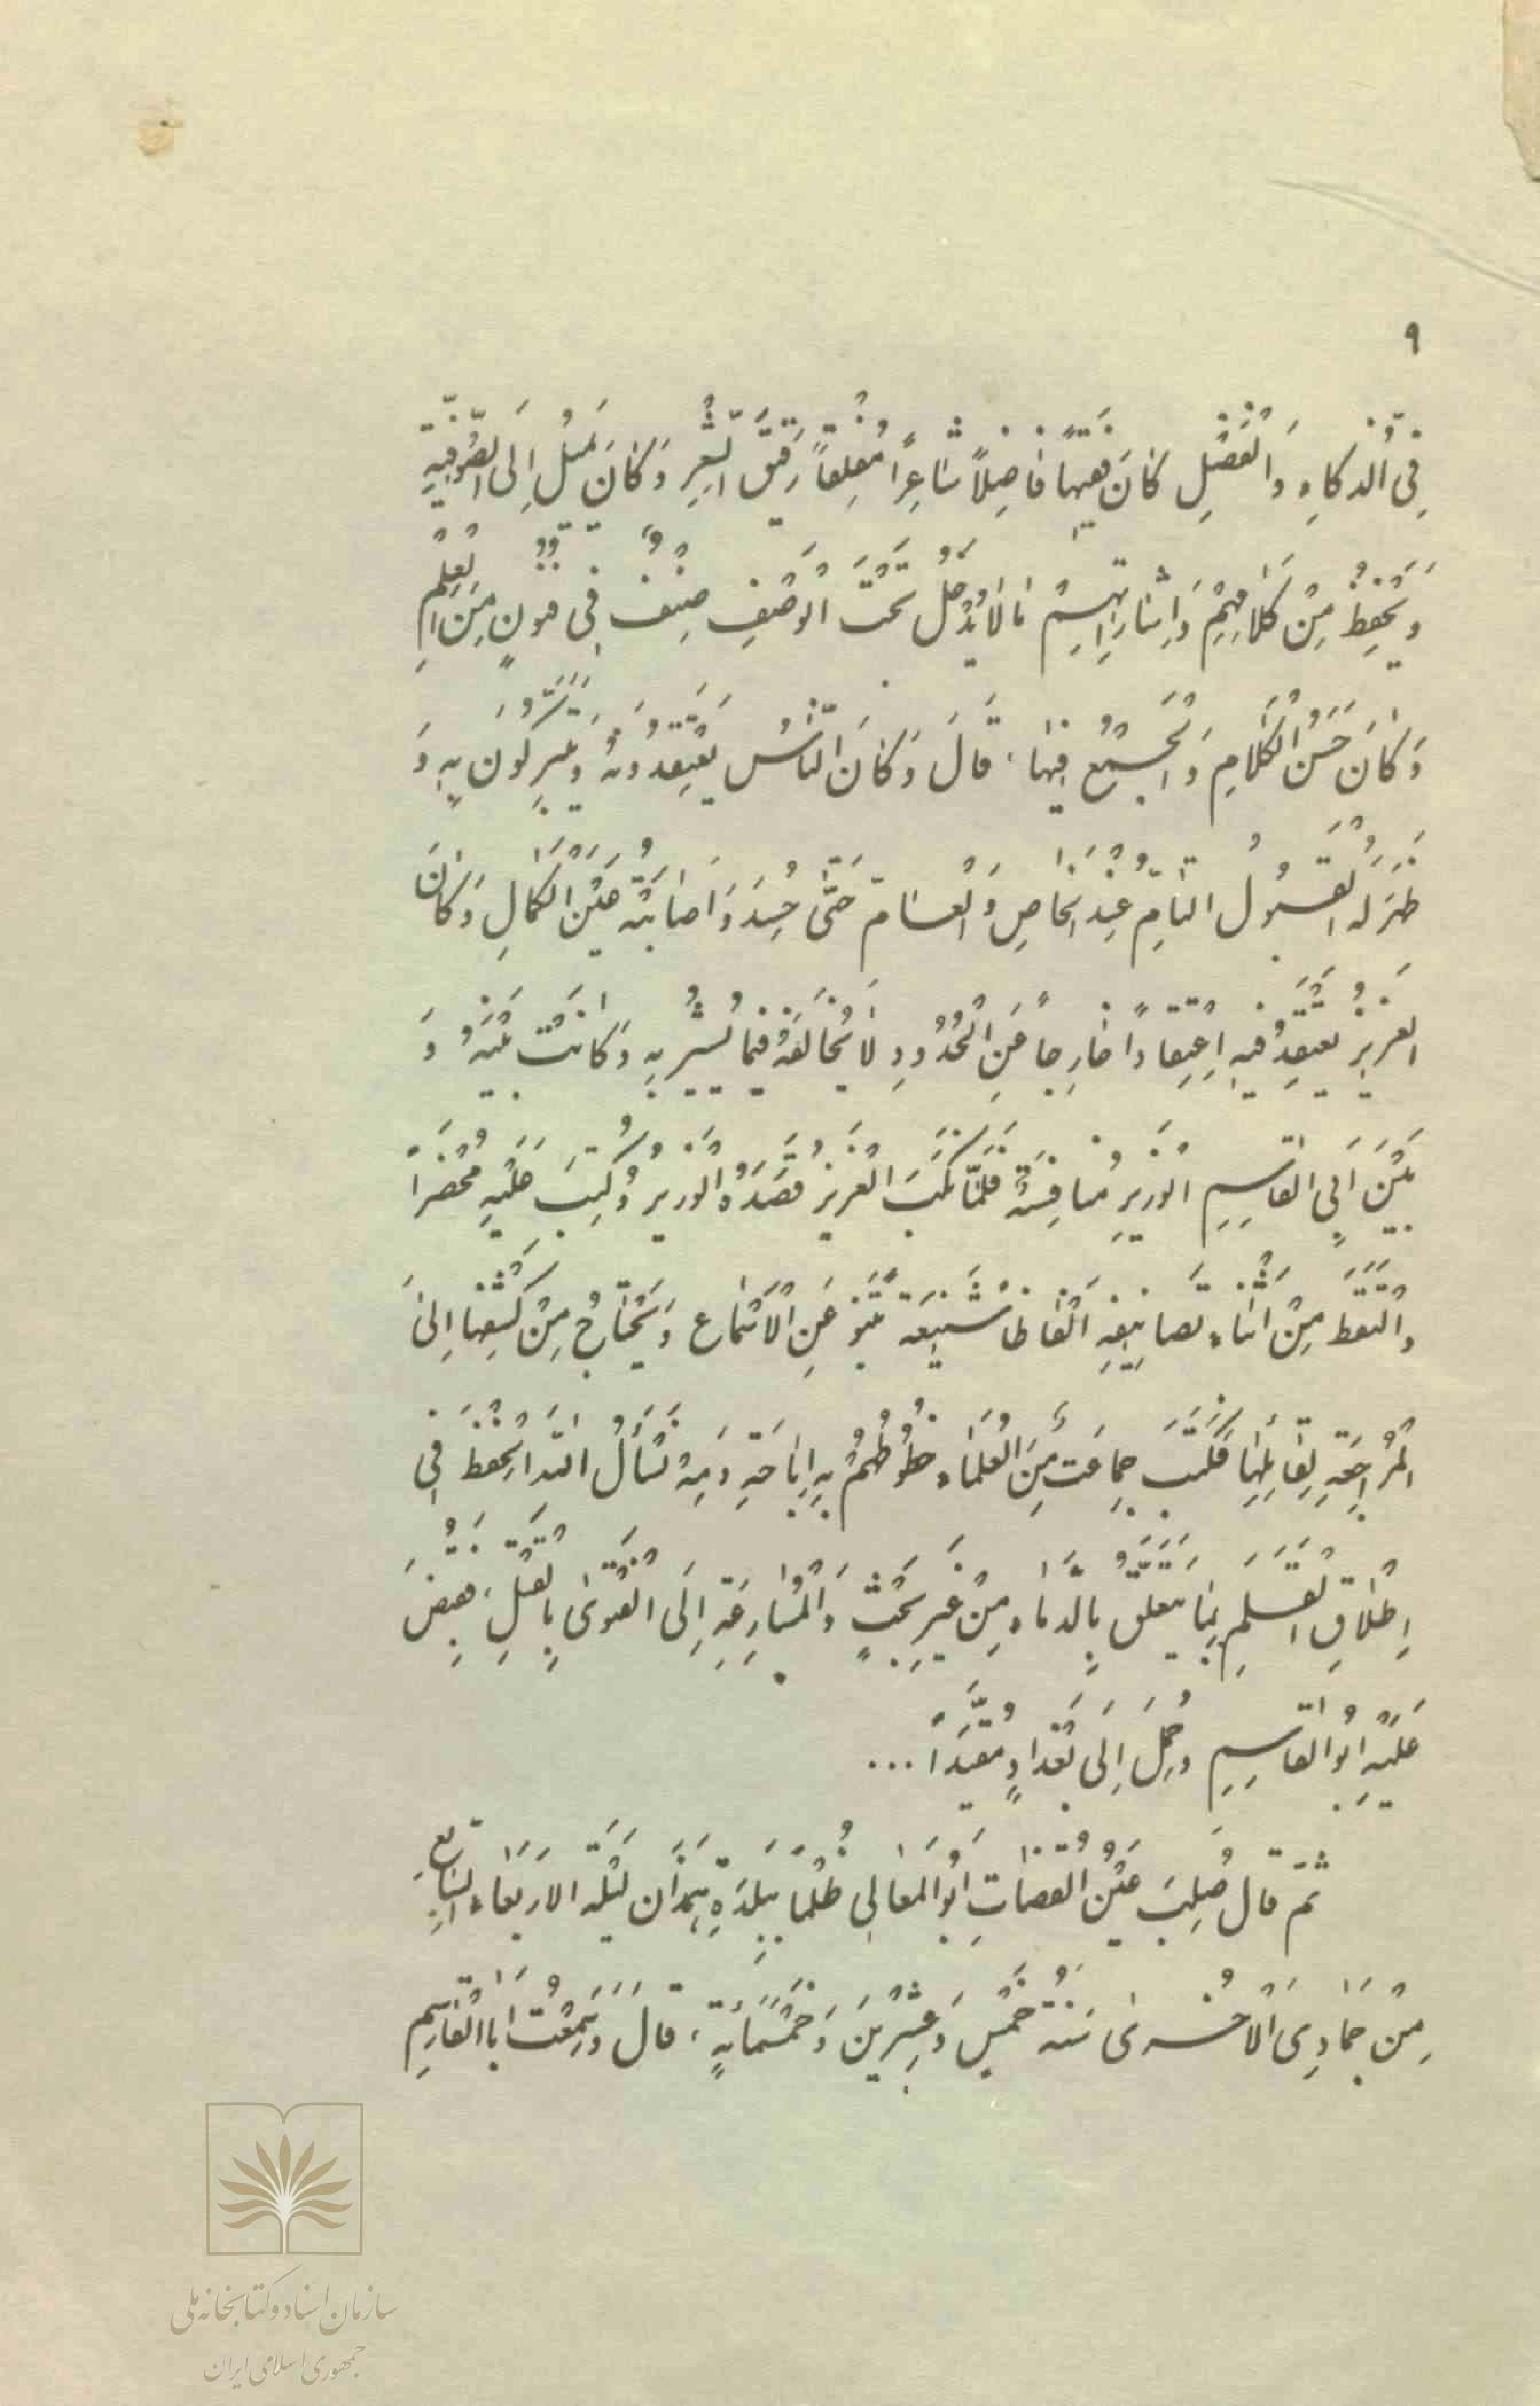 ۹
فِی الُذکاءِ وَ الْفَضْلِ کانَ فَقیهاً فاضِلاً شاعِراً مُفْلِقاً رَقیقَ الشِّعْرِ وَ کانَ یَمیلُ اِلَی الصُّوفِیَّةِ
وَ یَحْفِظُ مِنْ کَلامِهِمْ وَ اِشاراتِهِمْ مالایَدْخُلُ تَحْتَ الْوَصْفِ صَنِفْ فی فنونٍ مِنَ الْعِلْمِ
وَ کانَ حَسَنَ الْکَلامِ وَ الْجَمْعِ فیها. قالَ وَ کانَ النّاسُ یَعْتَقِدُونَهُ وَ یَتَبَرَّکُونَ بِهِ وَ
ظَهَرَ لَهُ الْقَبُولُ التّامّ عِنْدَ الْخاصِ وَ الْعامّ حَتّی حُسِدَ وَ اَصابَتْهُ عَیْنُ الْکَمالِ وَ کانَ
العَزیزُ یَعْتَقِدُ فیهِ اِعْتِقاداً خارِجاً عَنِ الْحُدُودِ لایُخالِفَهُ فیما یُشیرُ بِهِ وَ کانَتْ بَیْنَهُ وَ
بَیْنَ اَبِی الْقاسِمِ الْوَزیرِ مُنافِسَةٌ فَلَمّا نُکِبَ الْعَزیزُ قَصَدَهُ الْوَزیرُ وَ کُتِبَ عَلَیْهِ مَحْضَراً
وَ الْتَقَطَ مِنْ اَثْناءِ تَصانیفِهِ اَلْفاظاً شَنیعَةً تَنْبُو عَنِ الْاَسْماعِ وَ یَحْتاجُ مِنْ کَشْفِها اِلیَ
الْمُراجِعَةِ لِقائِلِها فَکَتَبَ جَماعَتٌ مِنَ الْعُلَماءِ خُطُوطَهُمْ بِهِ اِباحَةِ دَمِهْ نَسْأَلُ اللهَ الْحِفْظَ فِی
اِطْلاقِ الْقَلَمِ بِما یَتَعَلَّقُ بِالدِّماءِ مِنْ غَیْرِ بَحْثٍ وَ الْمُسارِعَةِ اِلَی الْفَتْوی بِالْقَتْلِ، فَقَبِضَ
عَلَیْهِ اَبُو الْقاسِمِ وَ حُمِلَ اِلَی بَغْدادٍ مُقَیَّداً ...
ثمّ قال صُلِبَ عَیْنُ الْقُضاتِ اَبُو الْمَعالی ظُلْماً بِبَلَدَةِ هَمَدان لَیْلَة الاَرْبَعاءِ السّابِعِ
مِنْ جَمادِی الْاُخْری سَنَة خَمْسٍ وَ عِشْرینَ وَ خَمْسَمائَةٍ، قالَ وَ سَمِعْتُ اَبَا الْقاسِمِ
سازمان اسناد و کتابخانه ملی
جمهوری اسلامی ایران